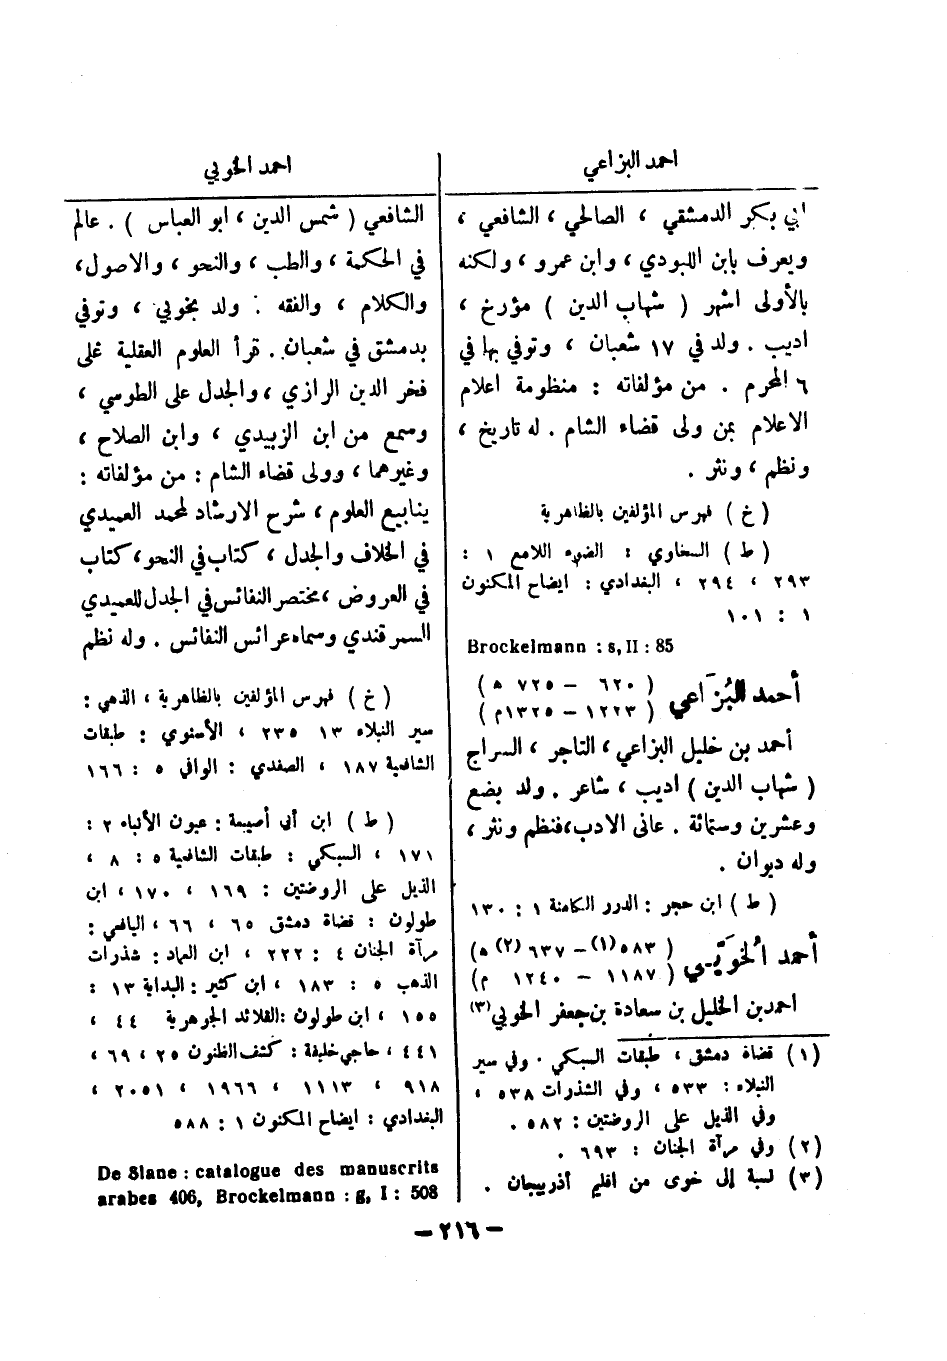 احمد البزاعي
ابي بكر الدمشقي ، الصالحي ، الشافعي ،
ويعرف بابن اللبودي ، وابن عمرو ، ولكنه
بالأولى اشهر ( شهاب الدين ) مؤرخ ،
اديب . ولد في ١٧ شعبان ، وتوفي بها في
٦ المحرم . من مؤلفاته : منظومة اعلام
الاعلام بمن ولى قضاء الشام . له تاريخ ،
ونظم ، ونثر .
( خ ) فهرس المؤلفين بالظاهرية
( ط ) السخاوي : الضوء اللامع ١ :
٢٩٣ ، ٢٩٤ ، البغدادي : ايضاح المكنون
١ : ١٠١
Brockelmann : s, II : 85
أحمد البُزَاعي ( ٦٢٠ – ٧٢٥ ه )
( ١٢٢٣ – ١٣٢٥م )
أحمد بن خليل البزاعي ، التاجر ، السراج
( شهاب الدين ) اديب ، شاعر . ولد بضع
وعشرين وستمائة . عانى الادب، فنظم ونثر ،
وله ديوان .
( ط ) ابن حجر : الدرر الكامنة ١ : ١٣٠
أحمد الخُوَيِّي ( ٥٨٣(١)– ٦٣٧(٢) ه )
( ١١٨٧ – ١٢٤٠ م )
احمد بن الخليل بن سعادة بن جعفر الخوبي(٣)
(١) قضاة دمشق ، طبقات السبكي . وفي سير
النبلاء : ٥٣٣ ، وفي الشذرات ٥٣٨ ،
وفي الذيل على الروضتين : ٥٨٢ .
(٢) وفي مرآة الجنان : ٦٩٣ .
(٣) نسبة إلى خوى من اقليم أذربيجان .
احمد الخوبي
الشافعي ( شمس الدين ، ابو العباس ) . عالم
في الحكمة ، والطب ، والنحو ، والاصول،
والكلام ، والفقه . ولد بخوبي ، وتوفي
بدمشق في شعبان . قرأ العلوم العقلية على
فخر الدين الرازي ، والجدل على الطوسي ،
وسمع من ابن الزبيدي ، وابن الصلاح ،
وغيرهما ، وولى قضاء الشام : من مؤلفاته :
ينابيع العلوم ، شرح الارشاد لمحمد العميدي
في الخلاف والجدل ، كتاب في النحو، كتاب
في العروض ، مختصر النفائس في الجدل للعميدي
السمرقندي وسماه عرائس النفائس . وله نظم
( خ ) فهرس المؤلفين بالظاهرية ، الذهي :
سير النبلاء ١٣ ٢٣٥ ، الأسنوي : طبقات
الشافعية ١٨٧ ، الصفدي : الوافي ٥ : ١٦٦
( ط ) ابن أبي أصيبعة : عيون الأنباء ٢ :
١٧١ ، السبكي : طبقات الشافعية ٥ : ٨ ،
الذيل على الروضتين : ١٦٩ ، ١٧٠ ، ابن
طولون : قضاة دمشق ٦٥ ، ٦٦ ، اليافعي :
مرآة الجنان ٤ : ٢٢٢ ، ابن العماد : شذرات
الذهب ٥ : ١٨٣ ، ابن كثير : البداية ١٣ :
١٥٥ ، ابن طولون :القلائد الجوهرية ٤٤ ،
٤٤١ ، حاجي خليفة : كشف الظنون ٢٥ ، ٦٩ ،
٩١٨ ، ١١١٣ ، ١٩٦٦ ، ٢٠٥١ ،
البغدادي : ايضاح المكنون ١ : ٥٨٨
De Slane : catalogue des manuscrits
arabes 406, Brockelmann : g, I : 508
– ٢١٦ –